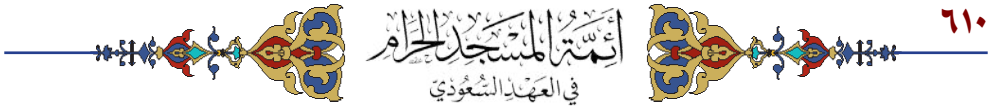 ٦١٠
أَئِمَّةُ الْمَسْجِدِ الْحَرَامِ
فِي الْعَهْدِ السُّعُودِيِّ